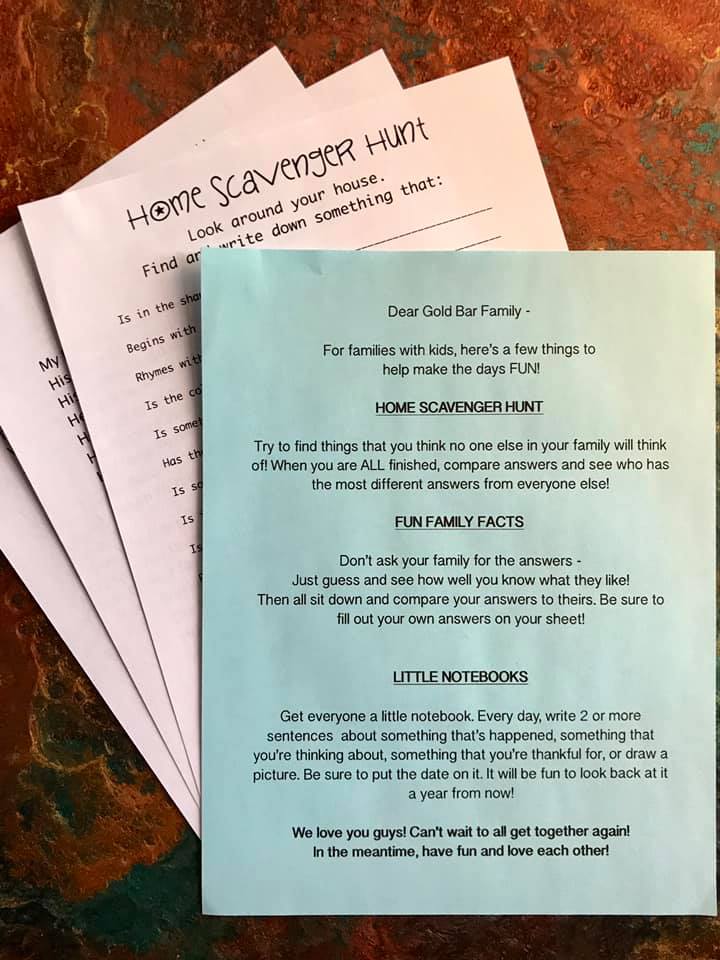 HOME SCAVENGER HUNT
Look around your house.
Find and write down something that:
Is in the
Begins with
Rhymes
Is the
Is
Has
Is
Is
Is
My
His
His
Dear Gold Bar Family -
For families with kids, here's a few things to
help make the days FUN!
HOME SCAVENGER HUNT
Try to find things that you think no one else in your family will think
of! When you are ALL finished, compare answers and see who has
the most different answers from everyone else!
FUN FAMILY FACTS
Don't ask your family for the answers -
Just guess and see how well you know what they like!
Then all sit down and compare your answers to theirs. Be sure to
fill out your own answers on your sheet!
LITTLE NOTEBOOKS
Get everyone a little notebook. Every day, write 2 or more
sentences about something that's happened, something that
you're thinking about, something that you're thankful for, or draw a
picture. Be sure to put the date on it. It will be fun to look back at it
a year from now!
We love you guys! Can't wait to all get together again!
In the meantime, have fun and love each other!